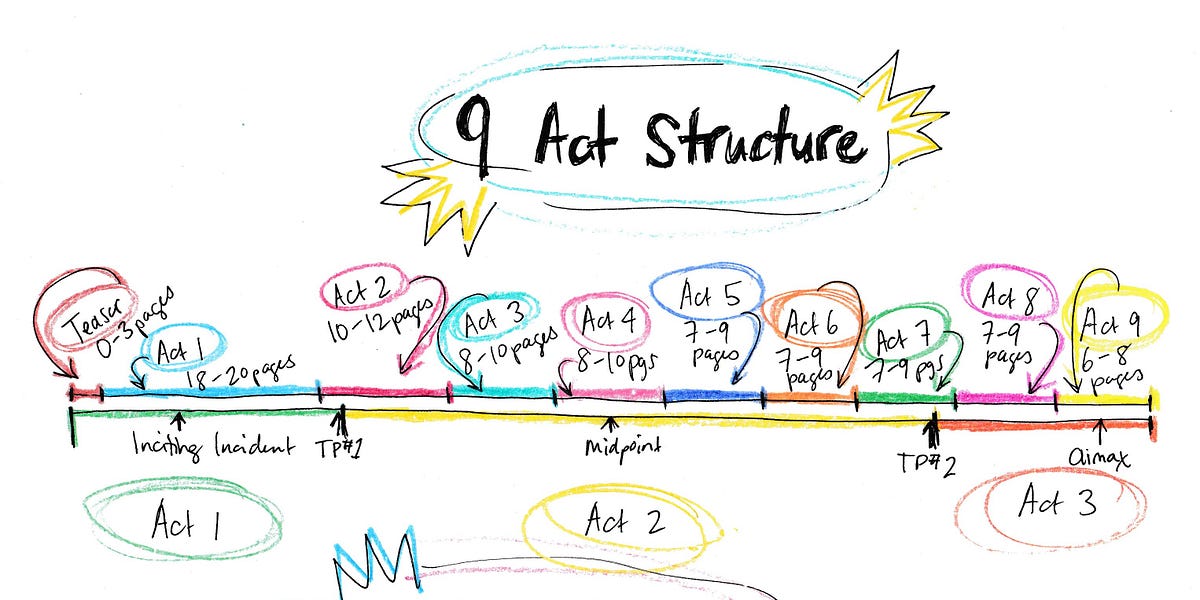 9 Act Structure
Teaser
0-3 pages
Act 1
18-20 pages
Act 2
10-12 pages
Act 3
8-10 pages
Act 4
8-10 pgs
Act 5
7-9
pages
Act 6
7-9
pages
Act 7
7-9 pgs
Act 8
7-9
pages
Act 9
6-8
pages
Inciting Incident
TP#1
midpoint
TP#2
Climax
Act 1
Act 2
Act 3